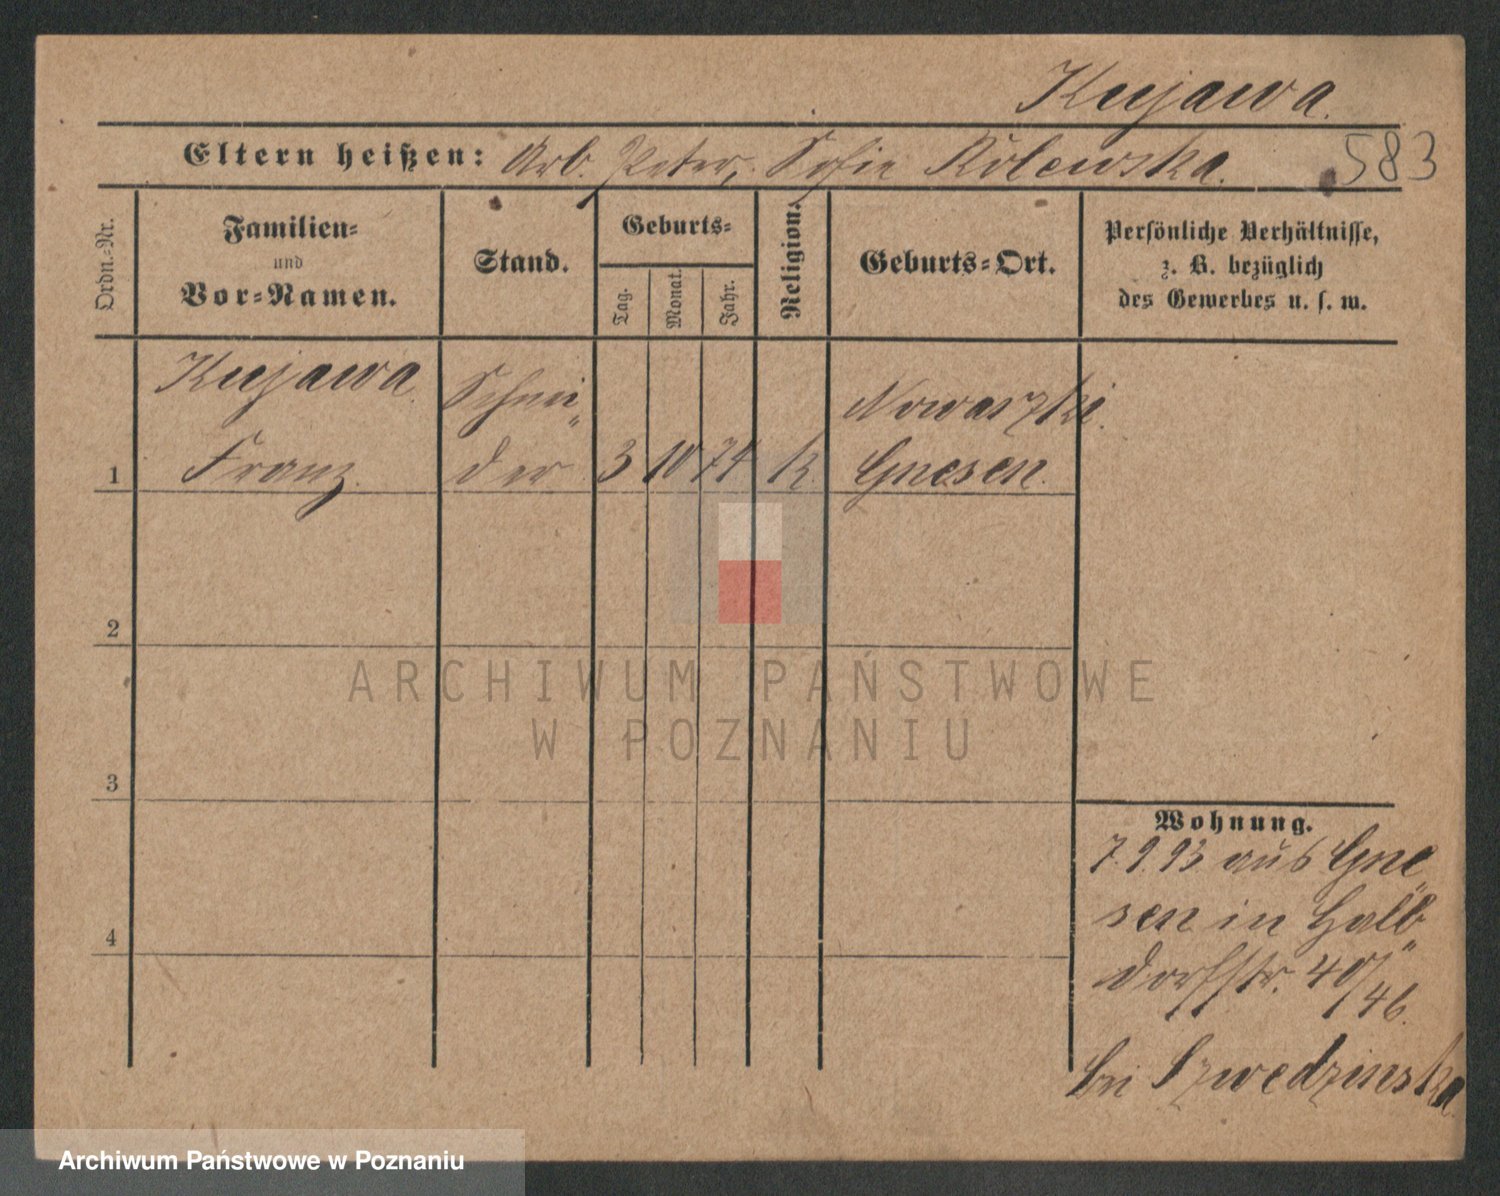 Kujawa.
Eltern heißen: Arb. Peter, Sofie Rolewska.
583
Ordn.-Nr.
Familien-
und
Vor-Namen.
Stand.
Geburts-
Tag.
Monat.
Jahr.
Religion.
Geburts-Ort.
Persönliche Verhältnisse,
z. B. bezüglich
des Gewerbes u. s. w.
Kujawa Schnei„ Nowaszki.
1 Franz. der 3 10 74 k. Gnesen.
2
ARCHIWUM PAŃSTWOWE
W POZNANIU
3
4
Wohnung.
7.9.93 aus Gne„
sen in Halb„
dorfstr. 40/46.
bei Szwedzinska
Archiwum Państwowe w Poznaniu